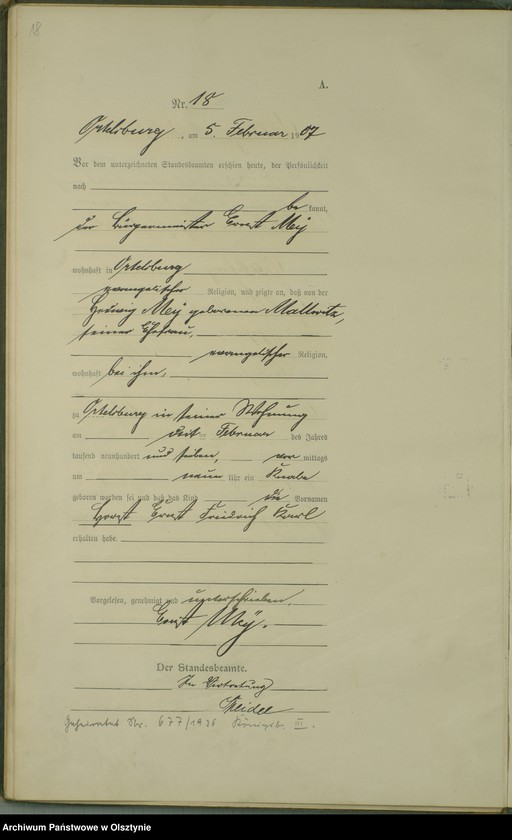 18
A.
Nr. 18
Ortelsburg, am 5. Februar 1907
Vor dem unterzeichneten Standesbeamten erschien heute, der Persönlichkeit
nach
be kannt,
der Bürgermeister Ernst Mey
wohnhaft in Ortelsburg
evangelischer Religion, und zeigte an, daß von der
Hedwig Mey geborenen
seiner Ehefrau,
evangelischer Religion,
wohnhaft bei ihm,
zu Ortelsburg in seiner Wohnung
am Februar des Jahres
tausend neunhundert und sieben, vor mittags
um neun Uhr ein Knabe
geboren worden sei und daß das Kind die Vornamen
Horst Ernst Friedrich Karl
erhalten habe.
Vorgelesen, genehmigt und unterschrieben.
Ernst Mey.
Der Standesbeamte.
In Vertretung
Geheiratet Nr. 677/1936 Königsb. III.
Archiwum Państwowe w Olsztynie